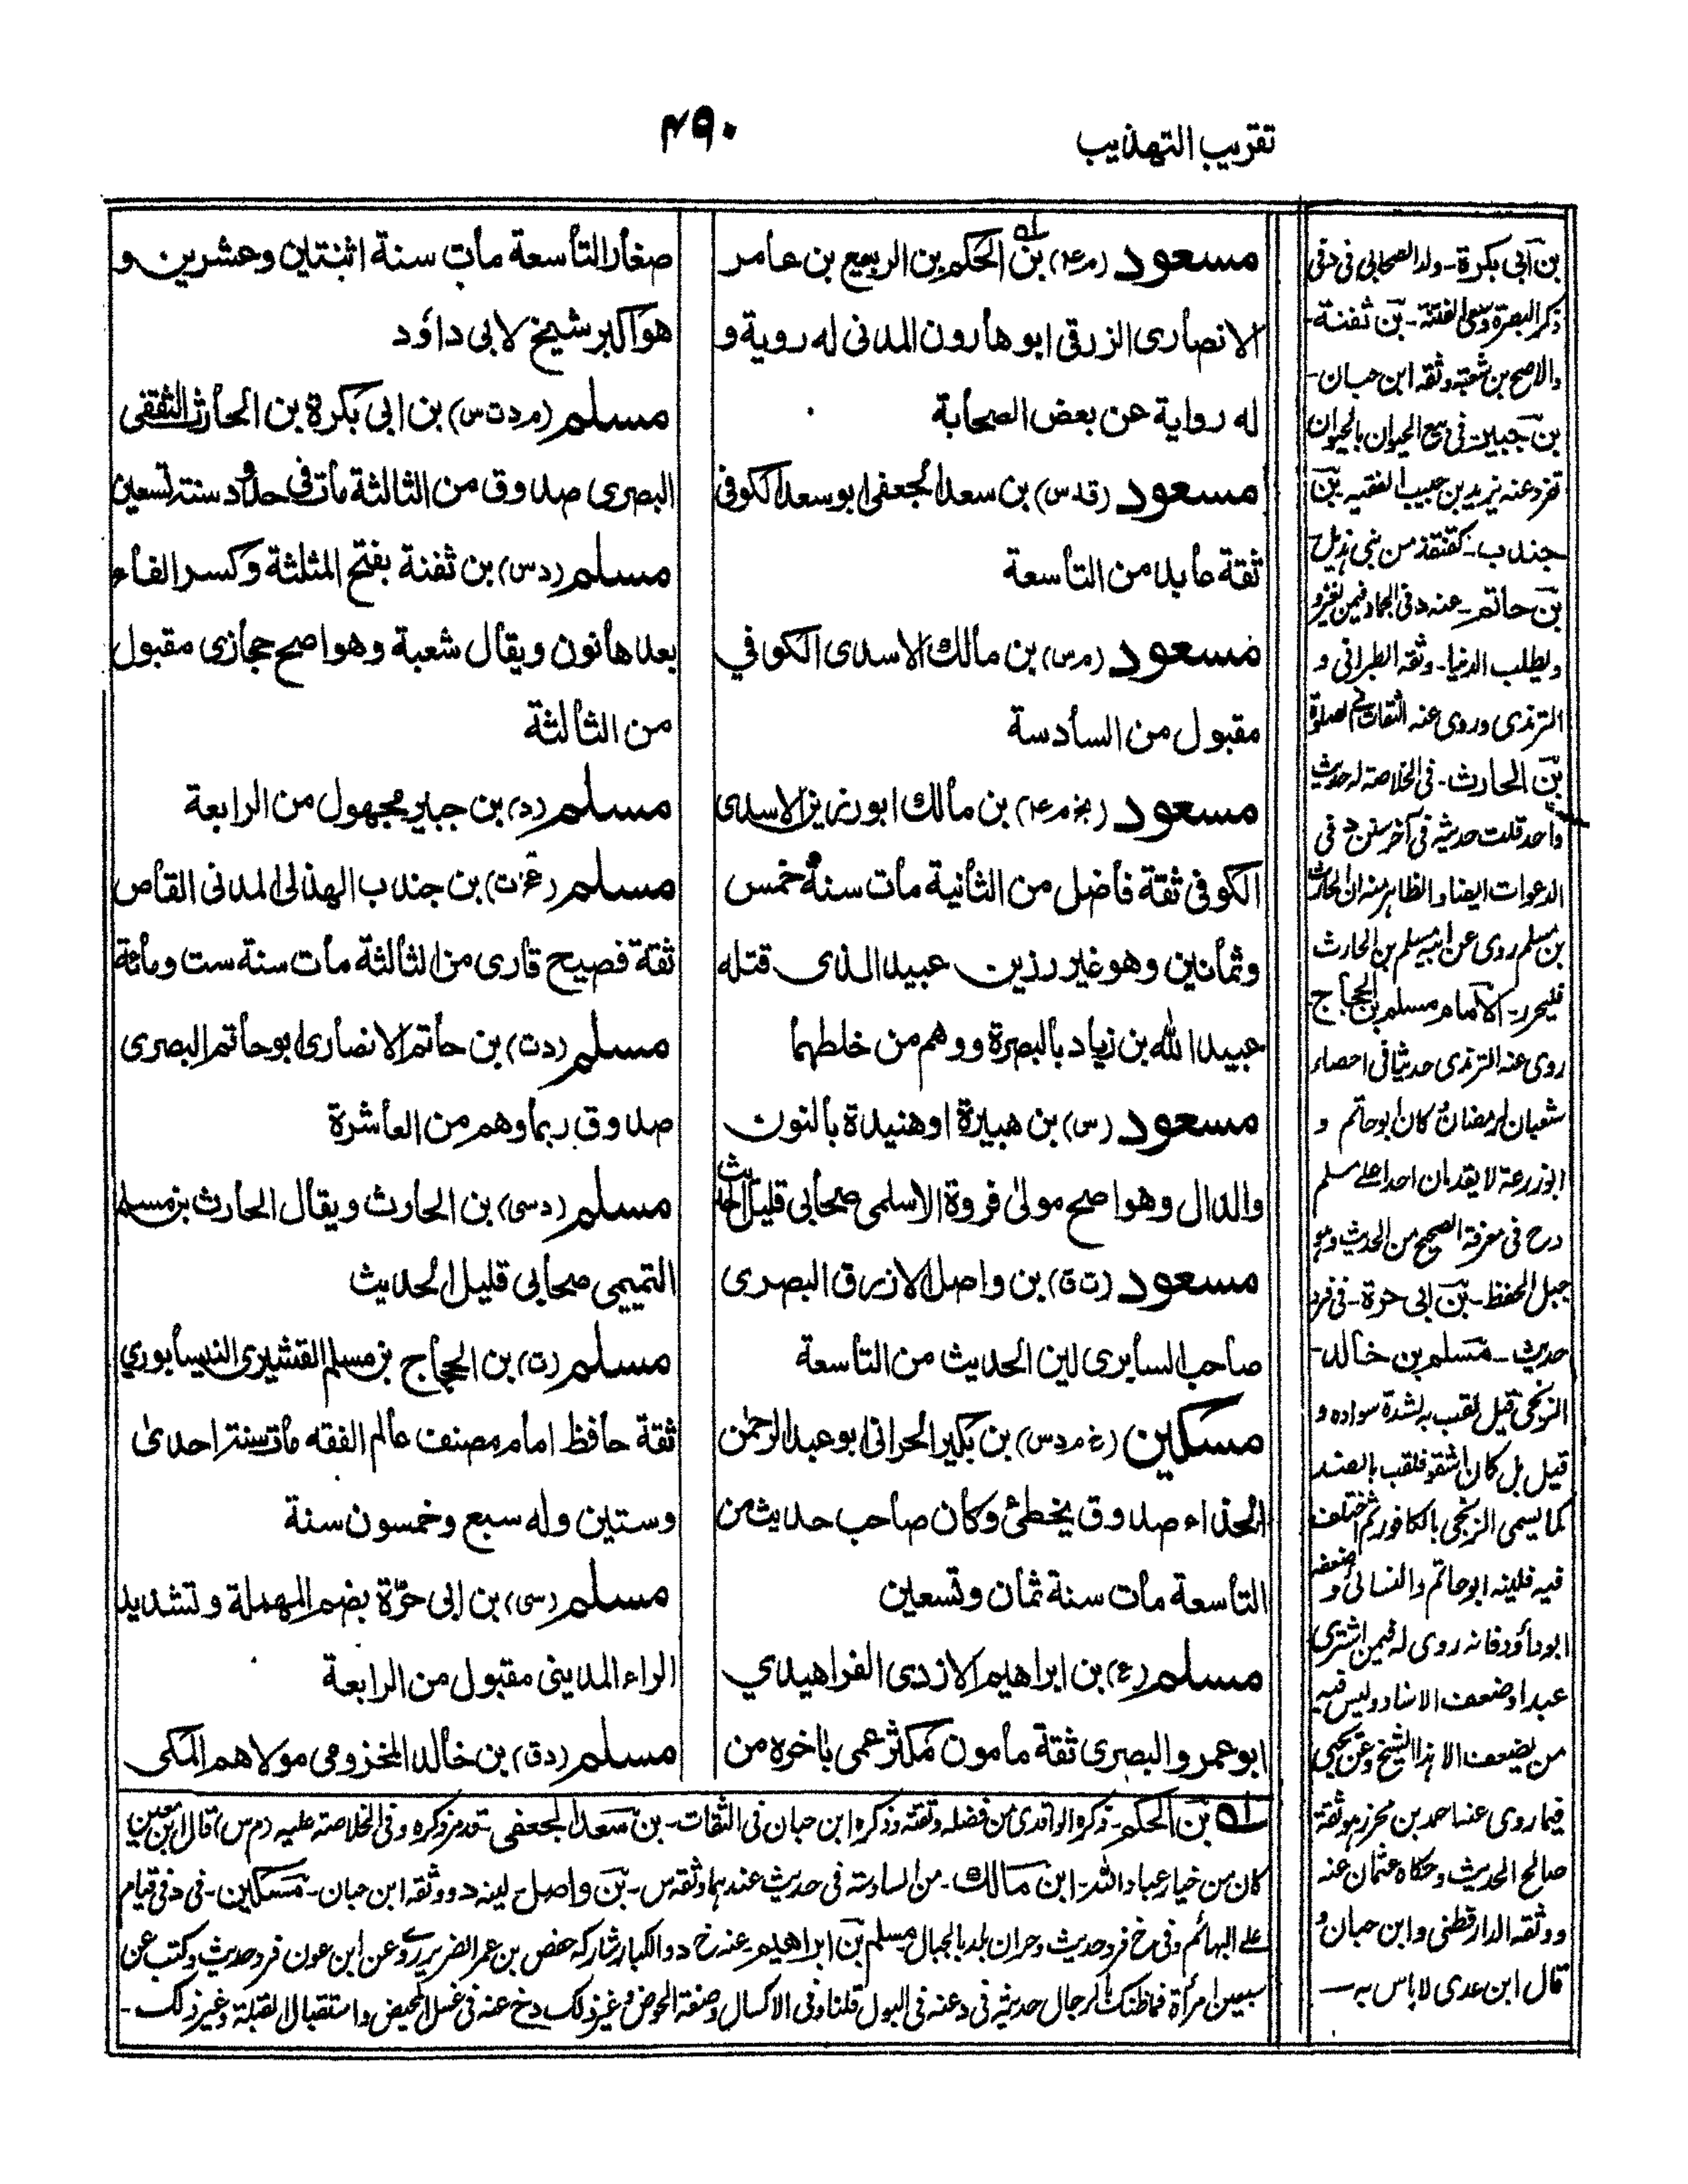 تقريب التهذيب
۴۹۰
مسعود (م ۴) بن الحكم بن الربيع بن عامر
الانصارى الزرقى ابو هارون المدنى له روية و
له رواية عن بعض الصحابة
مسعود (قد س) بن سعد الجعفى ابو سعد الكوفى
ثقة عابد من التاسعة
مسعود (م س) بن مالك الاسدى الكوفي
مقبول من السادسة
مسعود (بخ م ۴) بن مالك ابو رزين الاسدى
الكوفى ثقة فاضل من الثانية مات سنة خمس
وثمانين وهو غير رزين عبيد الذى قتله
عبيد الله بن زياد بالبصرة ووهم من خلطهما
مسعود (س) بن هبيرة او هنيدة بالنون
والدال وهو اصح مولى فروة الاسلمى صحابى قليل الحديث
مسعود (ت ق) بن واصل الازرق البصرى
صاحب السابرى لين الحديث من التاسعة
مسكين (خ م د س) بن بكير الحرانى ابو عبد الرحمن
الحذاء صدوق يخطئ وكان صاحب حديث من
التاسعة مات سنة ثمان وتسعين
مسلم (ع) بن ابراهيم الازدى الفراهيدي
ابو عمرو البصرى ثقة مامون مكثر عمى باخره من
صغار التاسعة مات سنة اثنتين وعشرين و
هو اكبر شيخ لابى داؤد
مسلم (م د ت س) بن ابى بكرة بن الحارث الثقفى
البصرى صدوق من الثالثة مات فى حدود سنة تسعين
مسلم (د س) بن ثفنة بفتح المثلثة وكسر الفاء
بعدها نون ويقال شعبة وهو اصح حجازى مقبول
من الثالثة
مسلم (د) بن جبير مجهول من الرابعة
مسلم (عخ ت) بن جندب الهذلى المدنى القاص
ثقة فصيح قارى من الثالثة مات سنة ست ومائة
مسلم (د ت) بن حاتم الانصارى ابو حاتم البصرى
صدوق ربما وهم من العاشرة
مسلم (د سى) بن الحارث ويقال الحارث بن مسلم
التميمى صحابى قليل الحديث
مسلم (ت) بن الحجاج بن مسلم القشيرى النيسابوري
ثقة حافظ امام مصنف عالم الفقه مات سنة احدى
وستين وله سبع وخمسون سنة
مسلم (سى) بن ابى حرّة بضم المهملة وتشديد
الراء المدينى مقبول من الرابعة
مسلم (د ق) بن خالد المخزومى مولاهم المكى
بن ابى بكرة - ولد الصحابى فى د فى
ذكر البصرة وفى الفتنة - بن ثفنة -
والاصح بن شعبة وثقه ابن حبان -
بن جبير - فى بيع الحيوان بالحيوان
تفرد عنه يزيد بن حبيب الفقيه بن
جندب - كقنفذ من بنى هذيل
بن حاتم - عنه د فى الجهاد فيمن يغزو
ويطلب الدنيا - وثقه الطبرانى و
الترمذى وروى عنه الثقات
بن الحارث - فى الخلاصة له حديث
واحد قلت حديثه فى آخر سنن د فى
الدعوات ايضا والظاهر منه ان الحارث
بن مسلم روى عن ابيه مسلم بن الحارث
فليحرر - الامام مسلم بن الحجاج
روى عنه الترمذى حديثا فى احصاء
شعبان لرمضان وكان ابو حاتم و
ابو زرعة لا يقدمان احدا على مسلم
رح فى معرفة الصحيح من الحديث وهو
جبل الحفظ - بن ابى حرة - فى فرد
حديث - مسلم بن خالد -
الزنجى قيل لقب به لشدة سواده و
قيل بل كان اشقر فلقب بالضد
كما يسمى الزنجى بالكافور ثم اختلف
فيه فلينه ابو حاتم والنسائى وضعفه
ابو داؤد فانه روى له فيمن اشترى
عبدا وضعف الاسناد وليس فيه
من يضعف الا هذا الشيخ وعن يحيى
فيما روى عنه احمد بن محرز هو ثقة
صالح الحديث وحكاه عثمان عنه
ووثقه الدارقطنى وابن حبان و
قال ابن عدى لا باس به -
له بن الحكم - ذكره الواقدى من فضله وثقته وذكره ابن حبان فى الثقات - بن سعد الجعفى - تقدم ذكره وفى الخلاصة عليه (م س) قال ابن معين
كان من خيار عباد الله - ابن مالك - من السادسة فى حديث عندهما وثقه س - بن واصل - لينه د ووثقه ابن حبان - مسكين - فى د فى قيام
على البهائم وفى خ فرد حديث وحران بلد بالجبال - مسلم بن ابراهيم - عنه خ د والكبار شاركه حفص بن عمر الضرير وعن ابن عون فرد حديث وكتب عن
سبعين امرأة فما ظنك بالرجال حديثه فى د عنه فى البول قلنا وفى الاكسال وصفة الحوض وغير ذلك د خ عنه فى غسل المحيض واستقبال القبلة وغير ذلك -